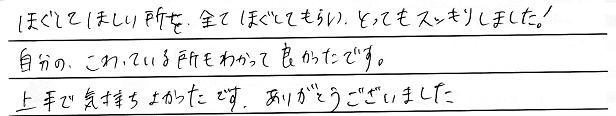 ほぐしてほしい所を、全てほぐしてもらい、とってもスッキリしました！
自分の、こわっている所もわかって良かったです。
上手で気持ちよかったです。ありがとうございました